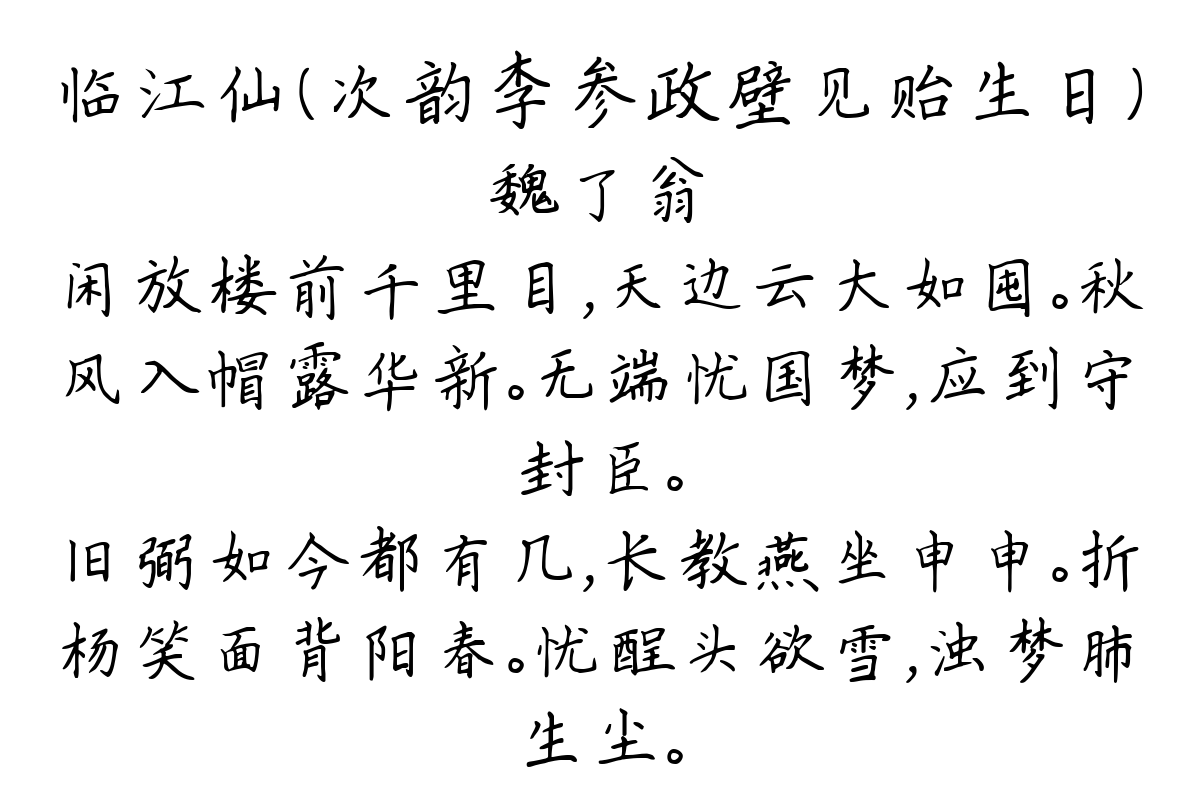 临江仙(次韵李参政壁见贻生日)
魏了翁
闲放楼前千里目,天边云大如囤。秋
风入帽露华新。无端忧国梦,应到守
封臣。
旧弼如今都有几,长教燕坐申申。折
杨笑面背阳春。忧酲头欲雪,浊梦肺
生尘。